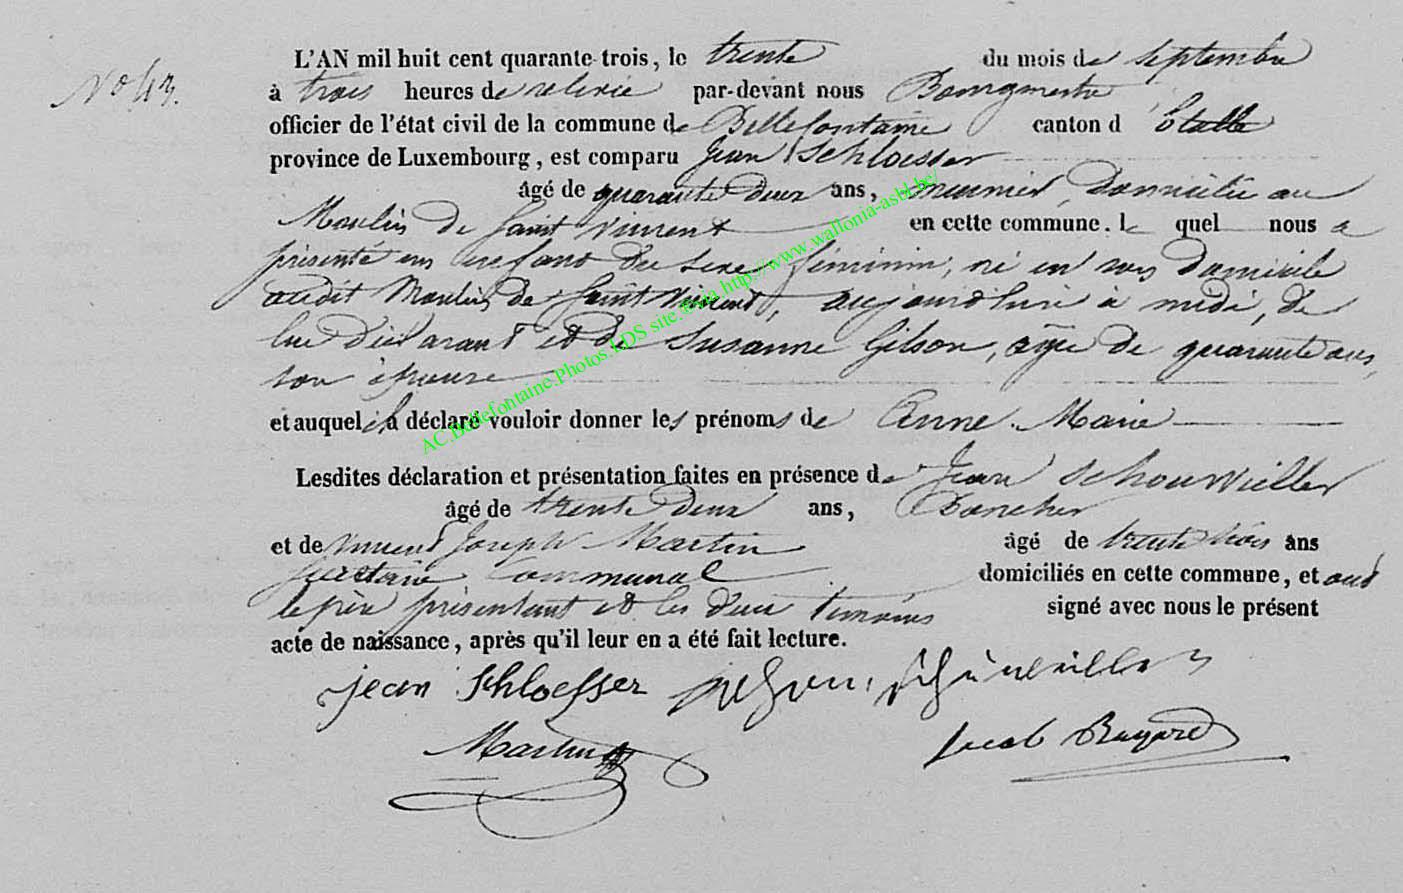 No 43.
L'AN mil huit cent quarante-trois, le trente du mois de septembre
à trois heures de relevée par-devant nous Bourgmestre
officier de l'état civil de la commune de Bellefontaine canton d'Etalle
province de Luxembourg, est comparu Jean Schloesser
âgé de quarante deux ans, meunier, domicilié au
Moulin de Saint Vincent en cette commune. le quel nous a
présenté un enfant du sexe féminin, né en son domicile
audit Moulin de Saint Vincent, aujourd'hui à midi, de
lui déclarant et de Susanne Gilson, âgée de quarante ans,
son épouse
et auquel il a déclaré vouloir donner les prénoms de Anne. Marie
Lesdites déclaration et présentation faites en présence de Jean Schouweiller
âgé de trente deux ans,
et de Vincent Joseph Martin âgé de trente trois ans
secrétaire communal domiciliés en cette commune, et ont
le père présentant et les deux témoins signé avec nous le présent
acte de naissance, après qu'il leur en a été fait lecture.
jean Schloesser
Martin Jacob Buyard
AC.Bellefontaine.Photos.LDS site.@via.http://www.wallonia-asbl.be/